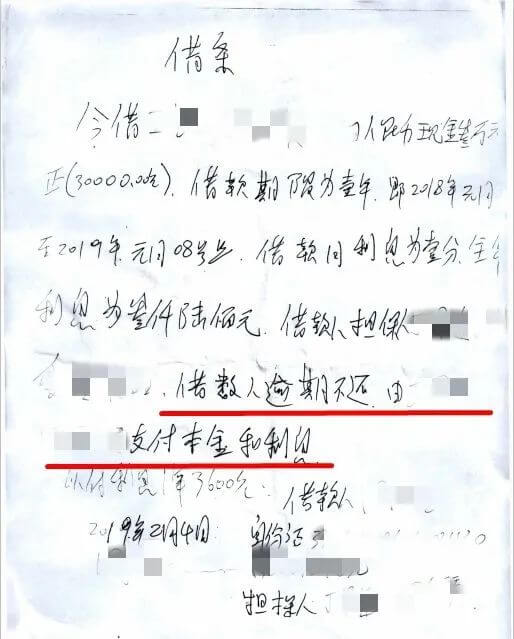 借条
今借
人民币现金叁万元
正(30000.00元). 借款期限为壹年. 即2018年元月
至2019年元月08号止. 借款月利息为壹分.全年
利息为叁仟陆佰元. 借款人担保人
借款人逾期不还.由
支付本金和利息.
以付利息1年3600元.
借款人
2019年2月4日. 身份证
担保人